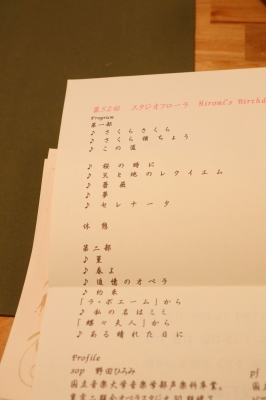 第52回 スタジオフローラ Hiromi's Birthd
Program
第一部
♪ さくらさくら
♪ さくら横ちょう
♪ この道
♪ 桜の時に
♪ 天と地のレクイエム
♪ 薔薇
♪ 夢
♪ セレナータ
休憩
第二部
♪ 菫
♪ 春よ
♪ 追憶のオペラ
♪ 約束
「ラ・ボエーム」から
♪ 私の名はミミ
「蝶々夫人」から
♪ ある晴れた日に
Profile
sop 野田ひろみ pf
国立音楽大学音楽学部声楽科卒業。